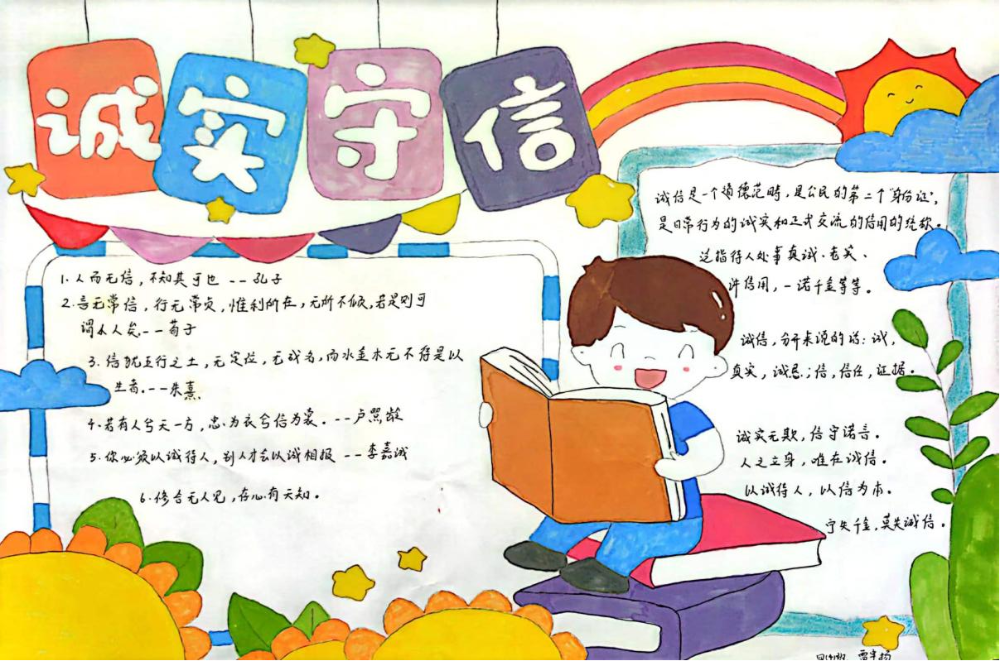 诚实守信
1. 人而无信，不知其可也 -- 孔子
2. 言无常信，行无常贞，惟利所在，无所不倾，若是则可
谓小人矣 -- 荀子
3. 信犹五行之土，无定位，无成名，而水金木无不待是以
生者。--朱熹
4. 若有人兮天一方，忠为衣兮信为裳。--卢照龄
5. 你必须以诚待人，别人才会以诚相报 --李嘉诚
6. 修合无人见，存心有天知。
诚信是一个道德范畴，是公民的第二个"身份证"，
是日常行为的诚实和正式交流的信用的统称。
泛指待人处事真诚、老实、
讲信用，一诺千金等等。
诚信，分开来说的话：诚，
真实，诚恳；信，信任，证据。
诚实无欺，信守诺言。
人之立身，唯在诚信。
以诚待人，以信为本。
宁失千金，莫失诚信。